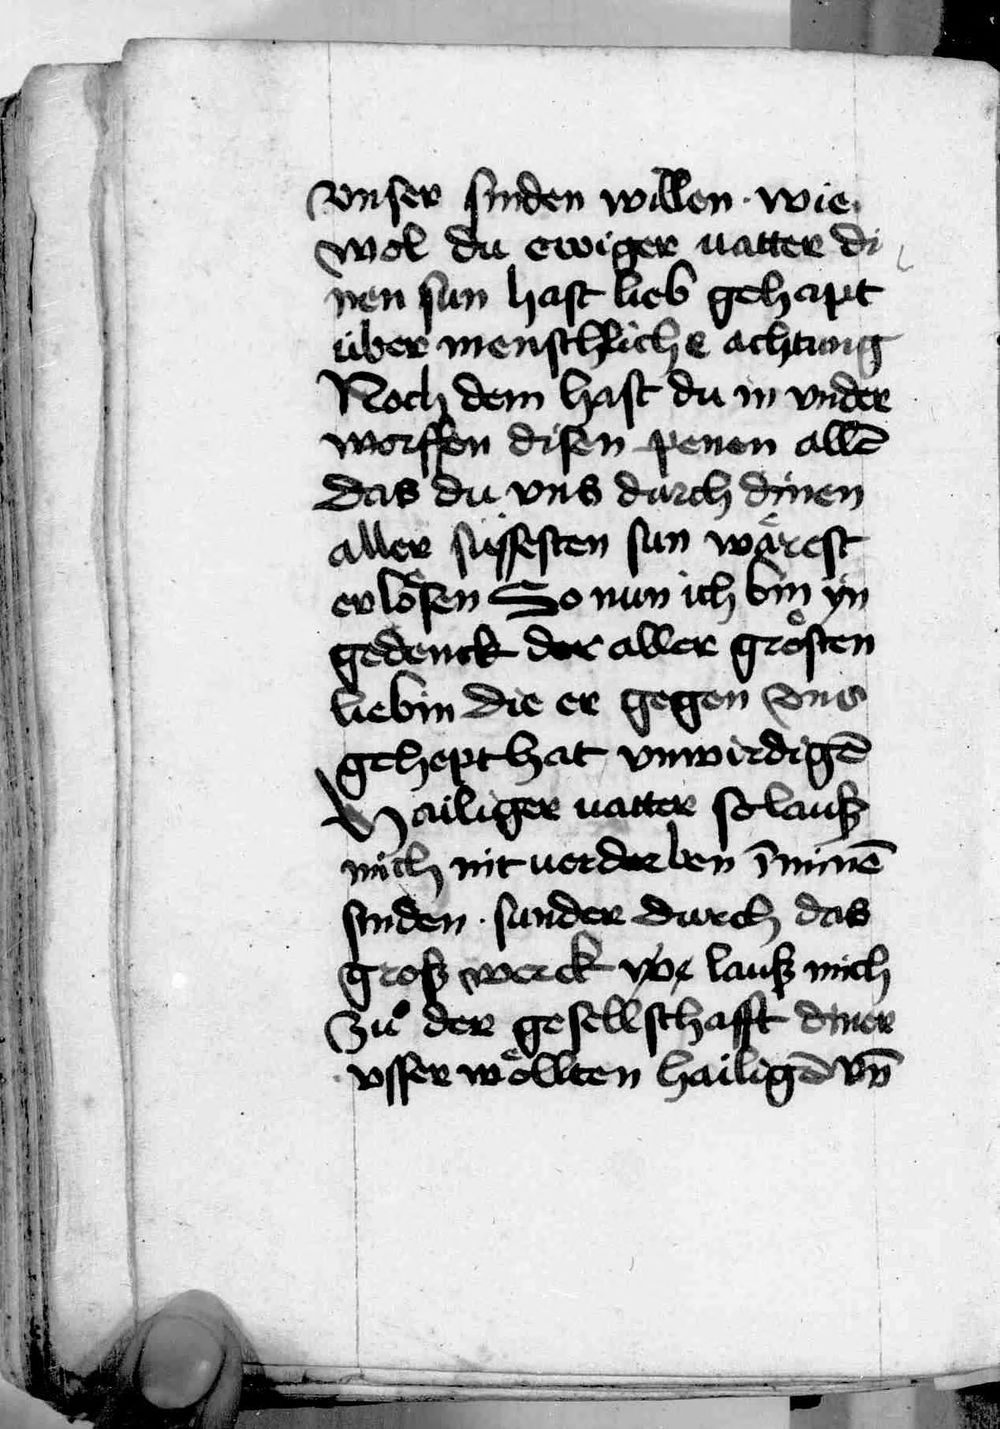 vnser sinden willen · wie
wol du ewiger uatter di
nen sun hast lieb gehapt
über menschliche achtung
Noch dem hast du in vnder
worffen disen penen allē
Das du vns durch dinen
aller süssesten sun wärest
erlösen So nun ich bin yn
gedenck der aller grösten
liebin die er gegen vns
gehept hat vnwirdigē
Hailiger uatter so lauß
mich nit uerderben ī minē
sinden · sunder durch das
groß werck lauß mich
zuͦ der gesellschafft diner
vsser wöllten hailigē vn̄